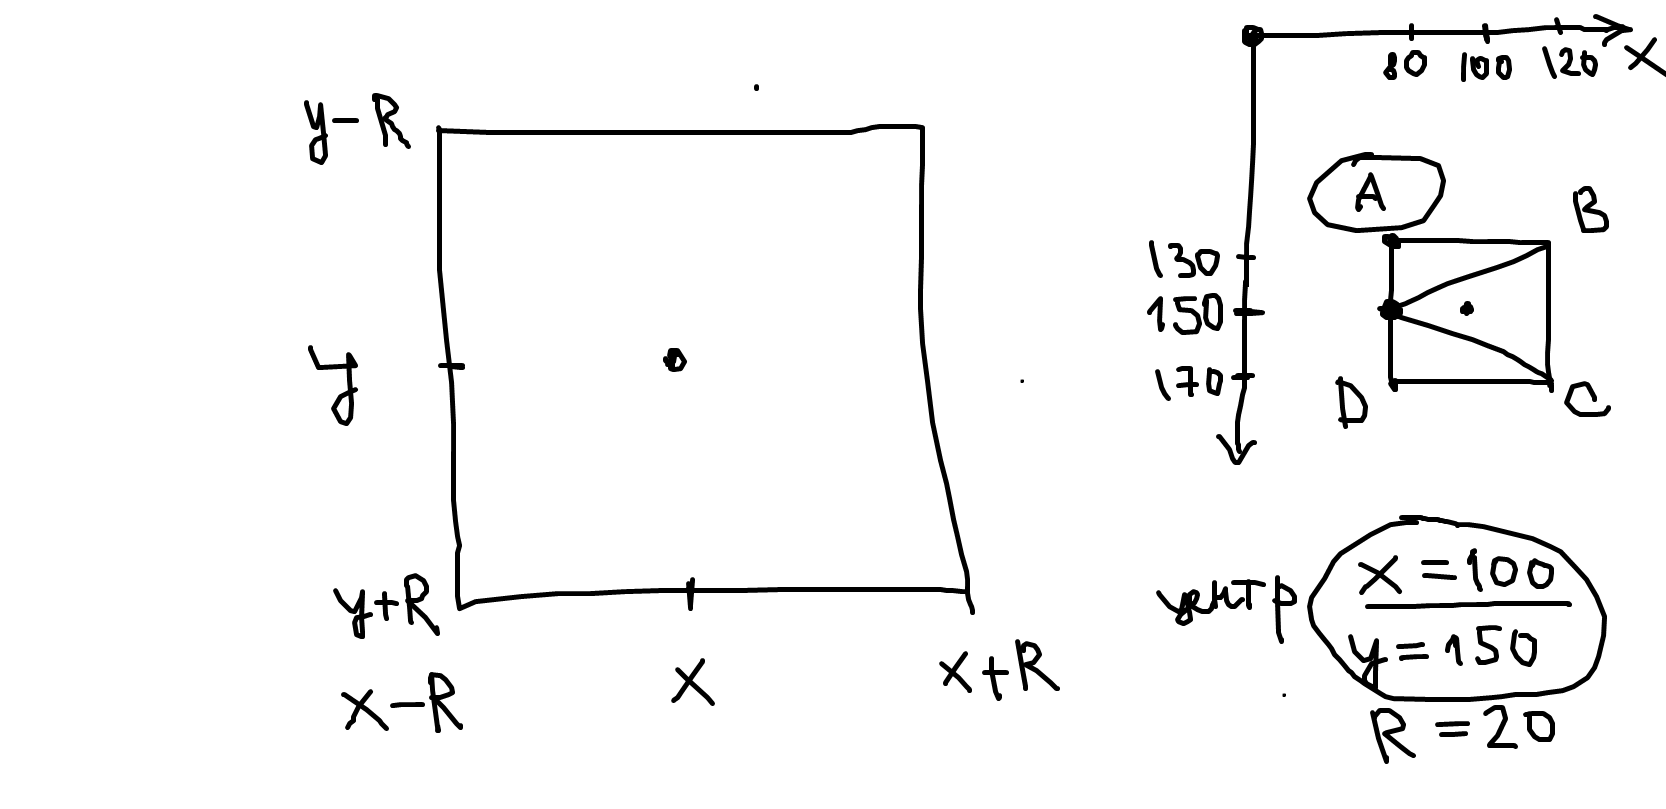 y-R
y
y+R
x-R
x
x+R
80 100 120 X
130
150
170
A
B
D
C
x=100
y=150
R=20